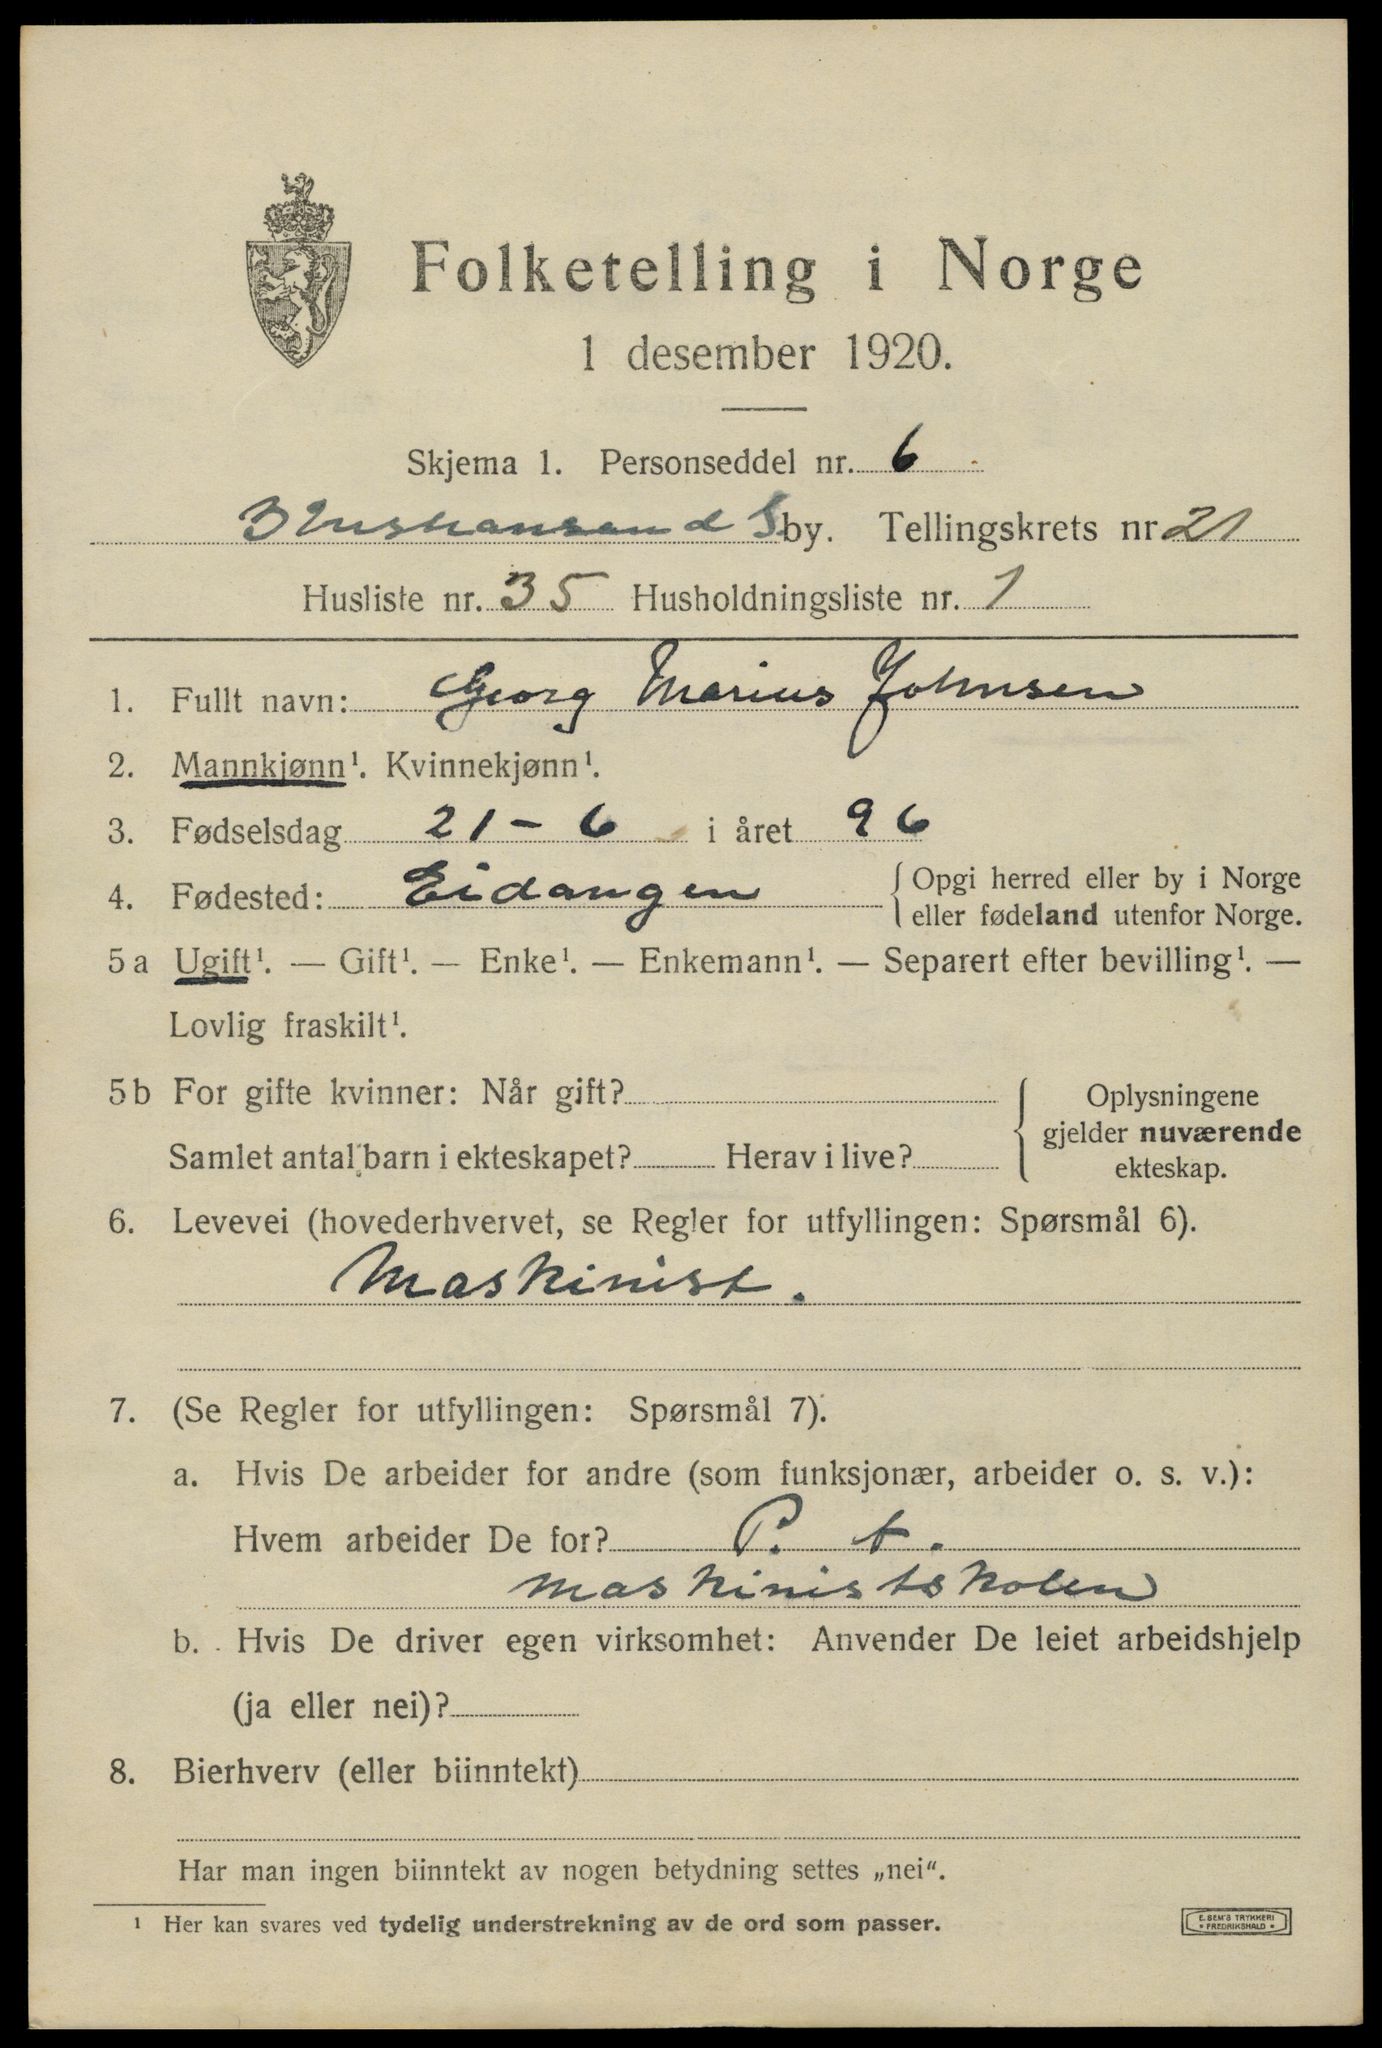 Folketelling i Norge
1 desember 1920.
Skjema 1. Personseddel nr. 6
Kristiansand S by. Tellingskrets nr 21
Husliste nr. 35 Husholdningsliste nr. 1
1. Fullt navn: Georg Marius Johnsen
2. Mannkjønn¹. Kvinnekjønn¹.
3. Fødselsdag 21-6 i året 96
4. Fødested: Eidangen {Opgi herred eller by i Norge
eller fødeland utenfor Norge.
5 a Ugift¹. — Gift¹. — Enke¹. — Enkemann¹. — Separert efter bevilling¹. —
Lovlig fraskilt¹.
5 b For gifte kvinner: Når gift?
Samlet antal barn i ekteskapet? Herav i live?
{Oplysningene
gjelder nuværende
ekteskap.
6. Levevei (hovederhvervet, se Regler for utfyllingen: Spørsmål 6).
Maskinist.
7. (Se Regler for utfyllingen: Spørsmål 7).
a. Hvis De arbeider for andre (som funksjonær, arbeider o. s. v.):
Hvem arbeider De for? P. t.
maskinistskolen
b. Hvis De driver egen virksomhet: Anvender De leiet arbeidshjelp
(ja eller nei)?
8. Bierhverv (eller biinntekt)
Har man ingen biinntekt av nogen betydning settes „nei“.
¹ Her kan svares ved tydelig understrekning av de ord som passer.
E. SEM'S TRYKKERI
* FREDRIKSHALD *